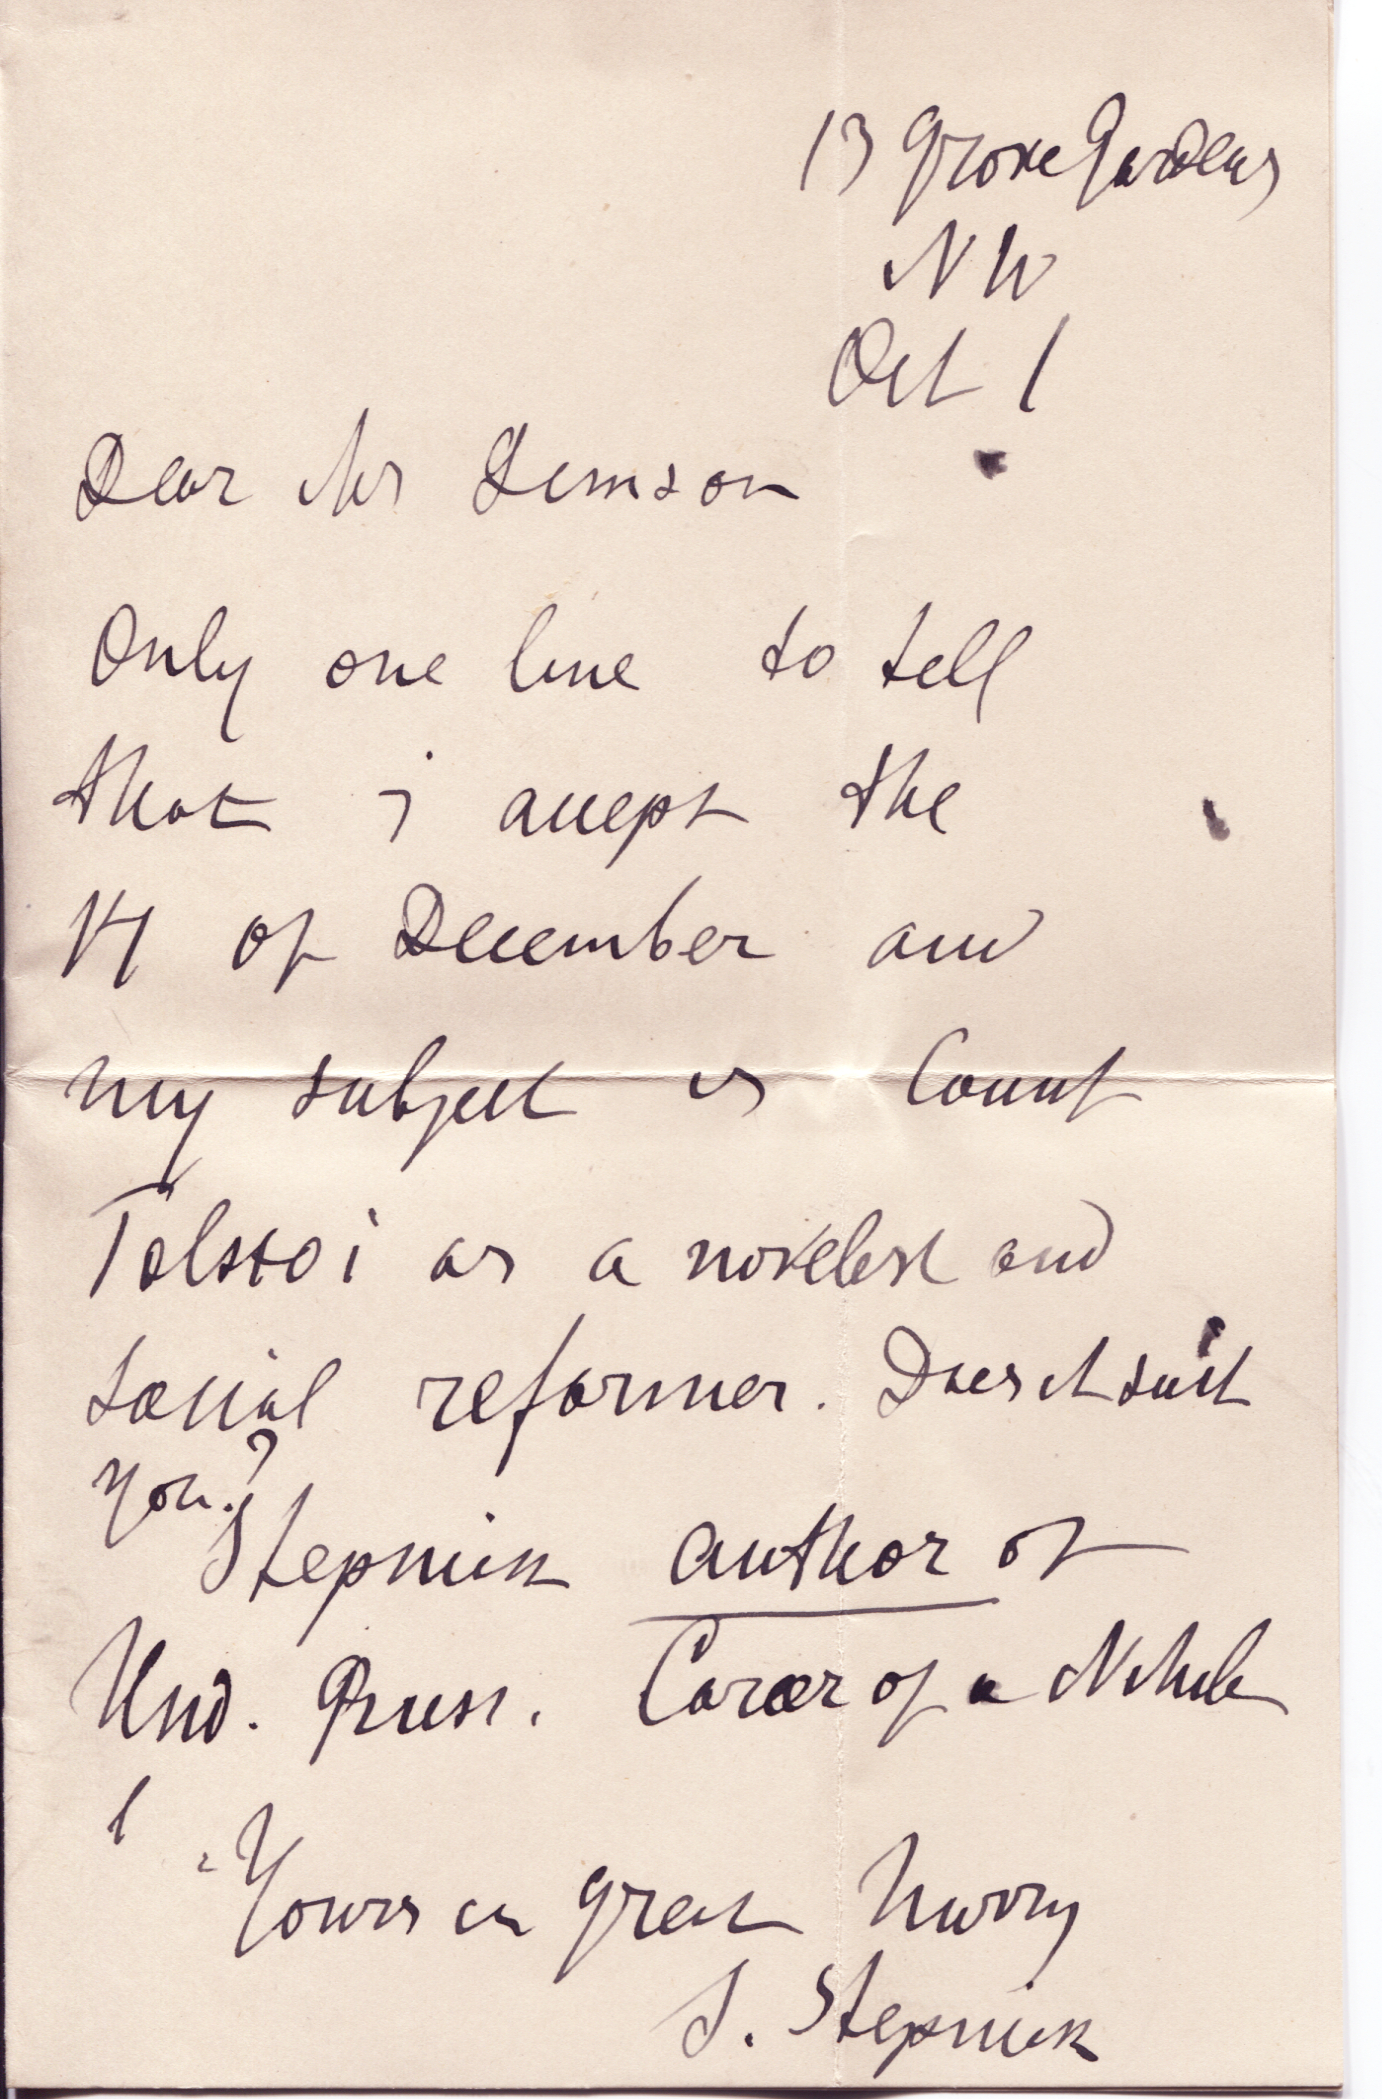 13 Grove Gardens
NW
Oct 1
Dear Mr
Only one line to tell
that i accept the
14 of December and
my subject is Count
Tolstoi as a novelist and
social reformer. Does it suit
you?
Stepniak author of
Und. Russ. Career of a Nihil
Yours in great hurry
S. Stepniak